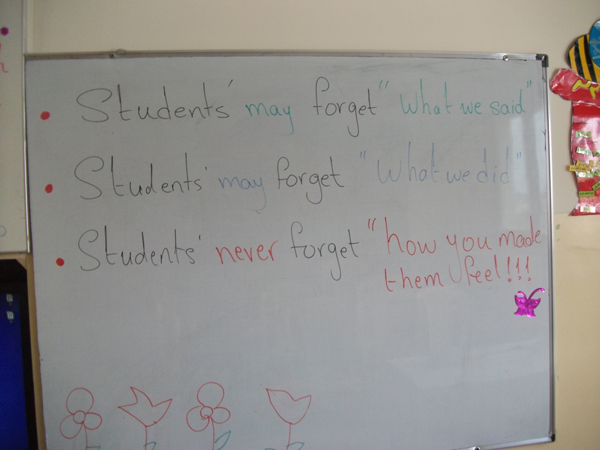 • Students' may forget "What we said"
• Students' may forget "What we did"
• Students' never forget "how you made
them feel!!!